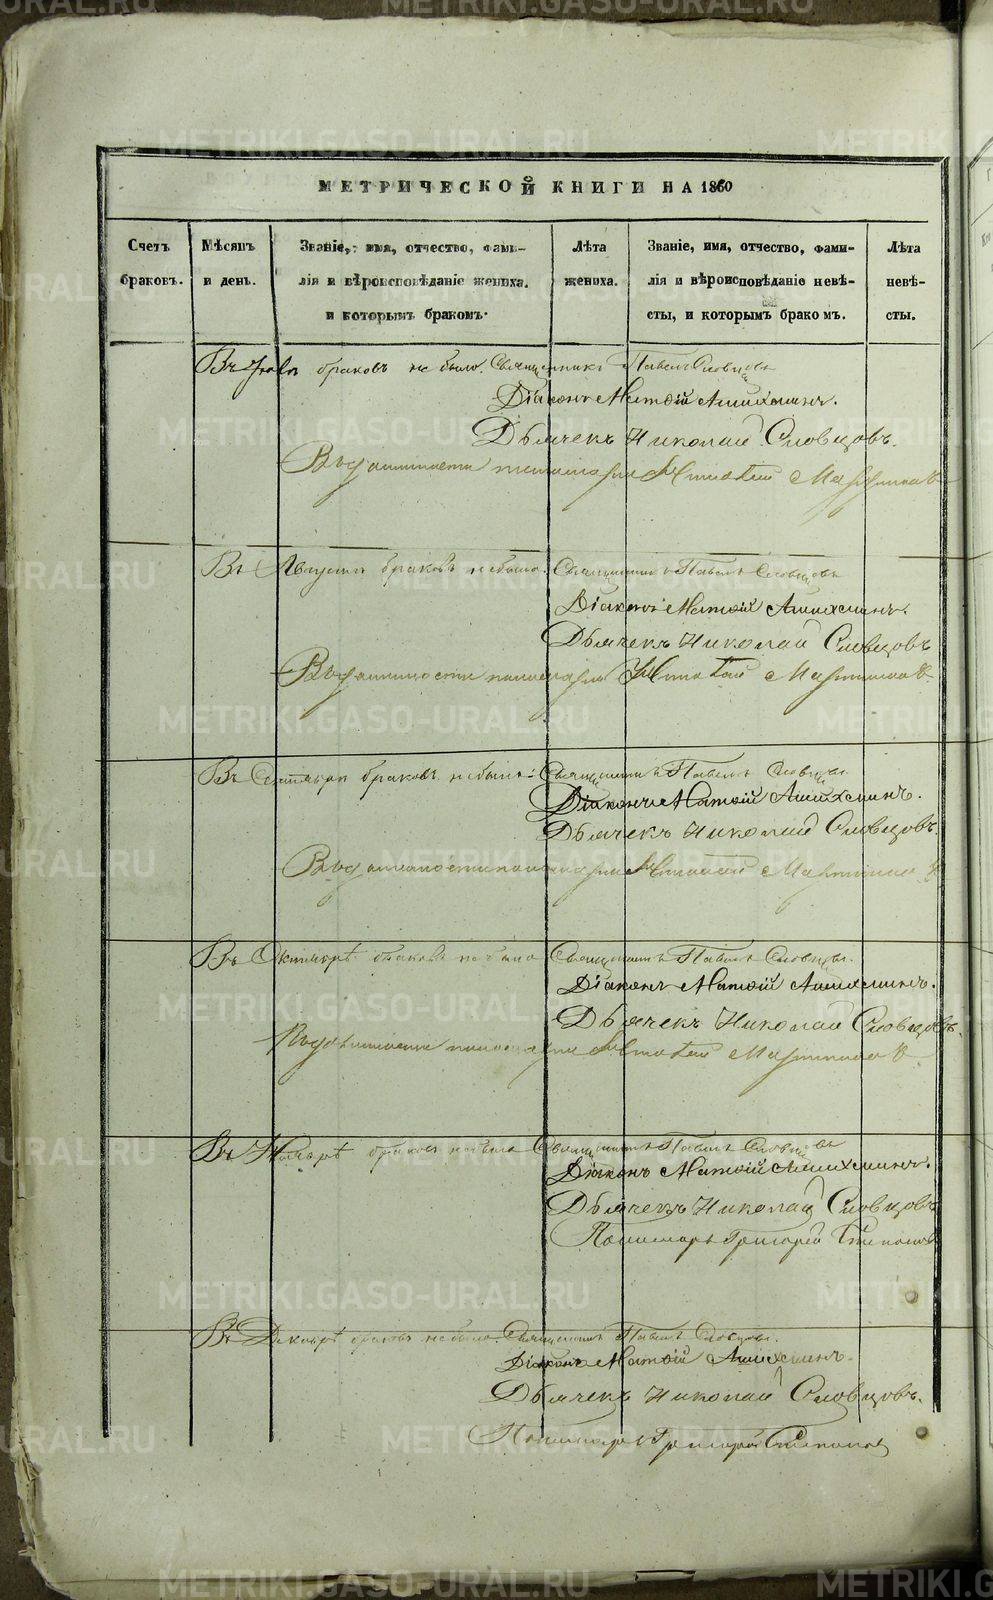 МЕТРИЧЕСКОЙ КНИГИ НА 1860
Счетъ браковъ.
Мѣсяцъ и день.
Званіе, имя, отчество, фами-
лія и вѣроисповѣданіе жениха.
и которымъ бракомъ.
Лѣта жениха.
Званіе, имя, отчество, фами-
лія и вѣроисповѣданіе невѣ-
сты, и которымъ бракомъ.
Лѣта невѣ-
сты.
Въ Іюлѣ браковъ не было. Священникъ Павелъ Словцовъ
Діаконъ Матѳій Ашихминъ.
Дьячекъ Николай Словцовъ.
Въ должности пономаря
Въ Августѣ браковъ не было. Священникъ Павелъ Словцовъ
Діаконъ Матѳій Ашихминъ.
Дьячекъ Николай Словцовъ
Въ должности пономаря
Въ Сентябрѣ браковъ не было. Священникъ Павелъ Словцовъ.
Діаконъ Матѳій Ашихминъ.
Дьячекъ Николай Словцовъ.
Въ должности пономаря
Въ Октябрѣ браковъ не было Священникъ Павелъ Словцовъ.
Діаконъ Матѳій Ашихминъ.
Дьячекъ Николай Словцовъ.
Въ должности пономаря
Въ Ноябрѣ браковъ не было Священникъ Павелъ Словцовъ
Діаконъ Матѳій Ашихминъ.
Дьячекъ Николай Словцовъ
Пономарь Григорей Степановъ
Въ Декабрѣ браковъ не было. Священникъ Павелъ Словцовъ.
Діаконъ Матѳій Ашихминъ.
Дьячекъ Николай Словцовъ.
Пономарь Григорей Степановъ
METRIKI.GASO-URAL.RU